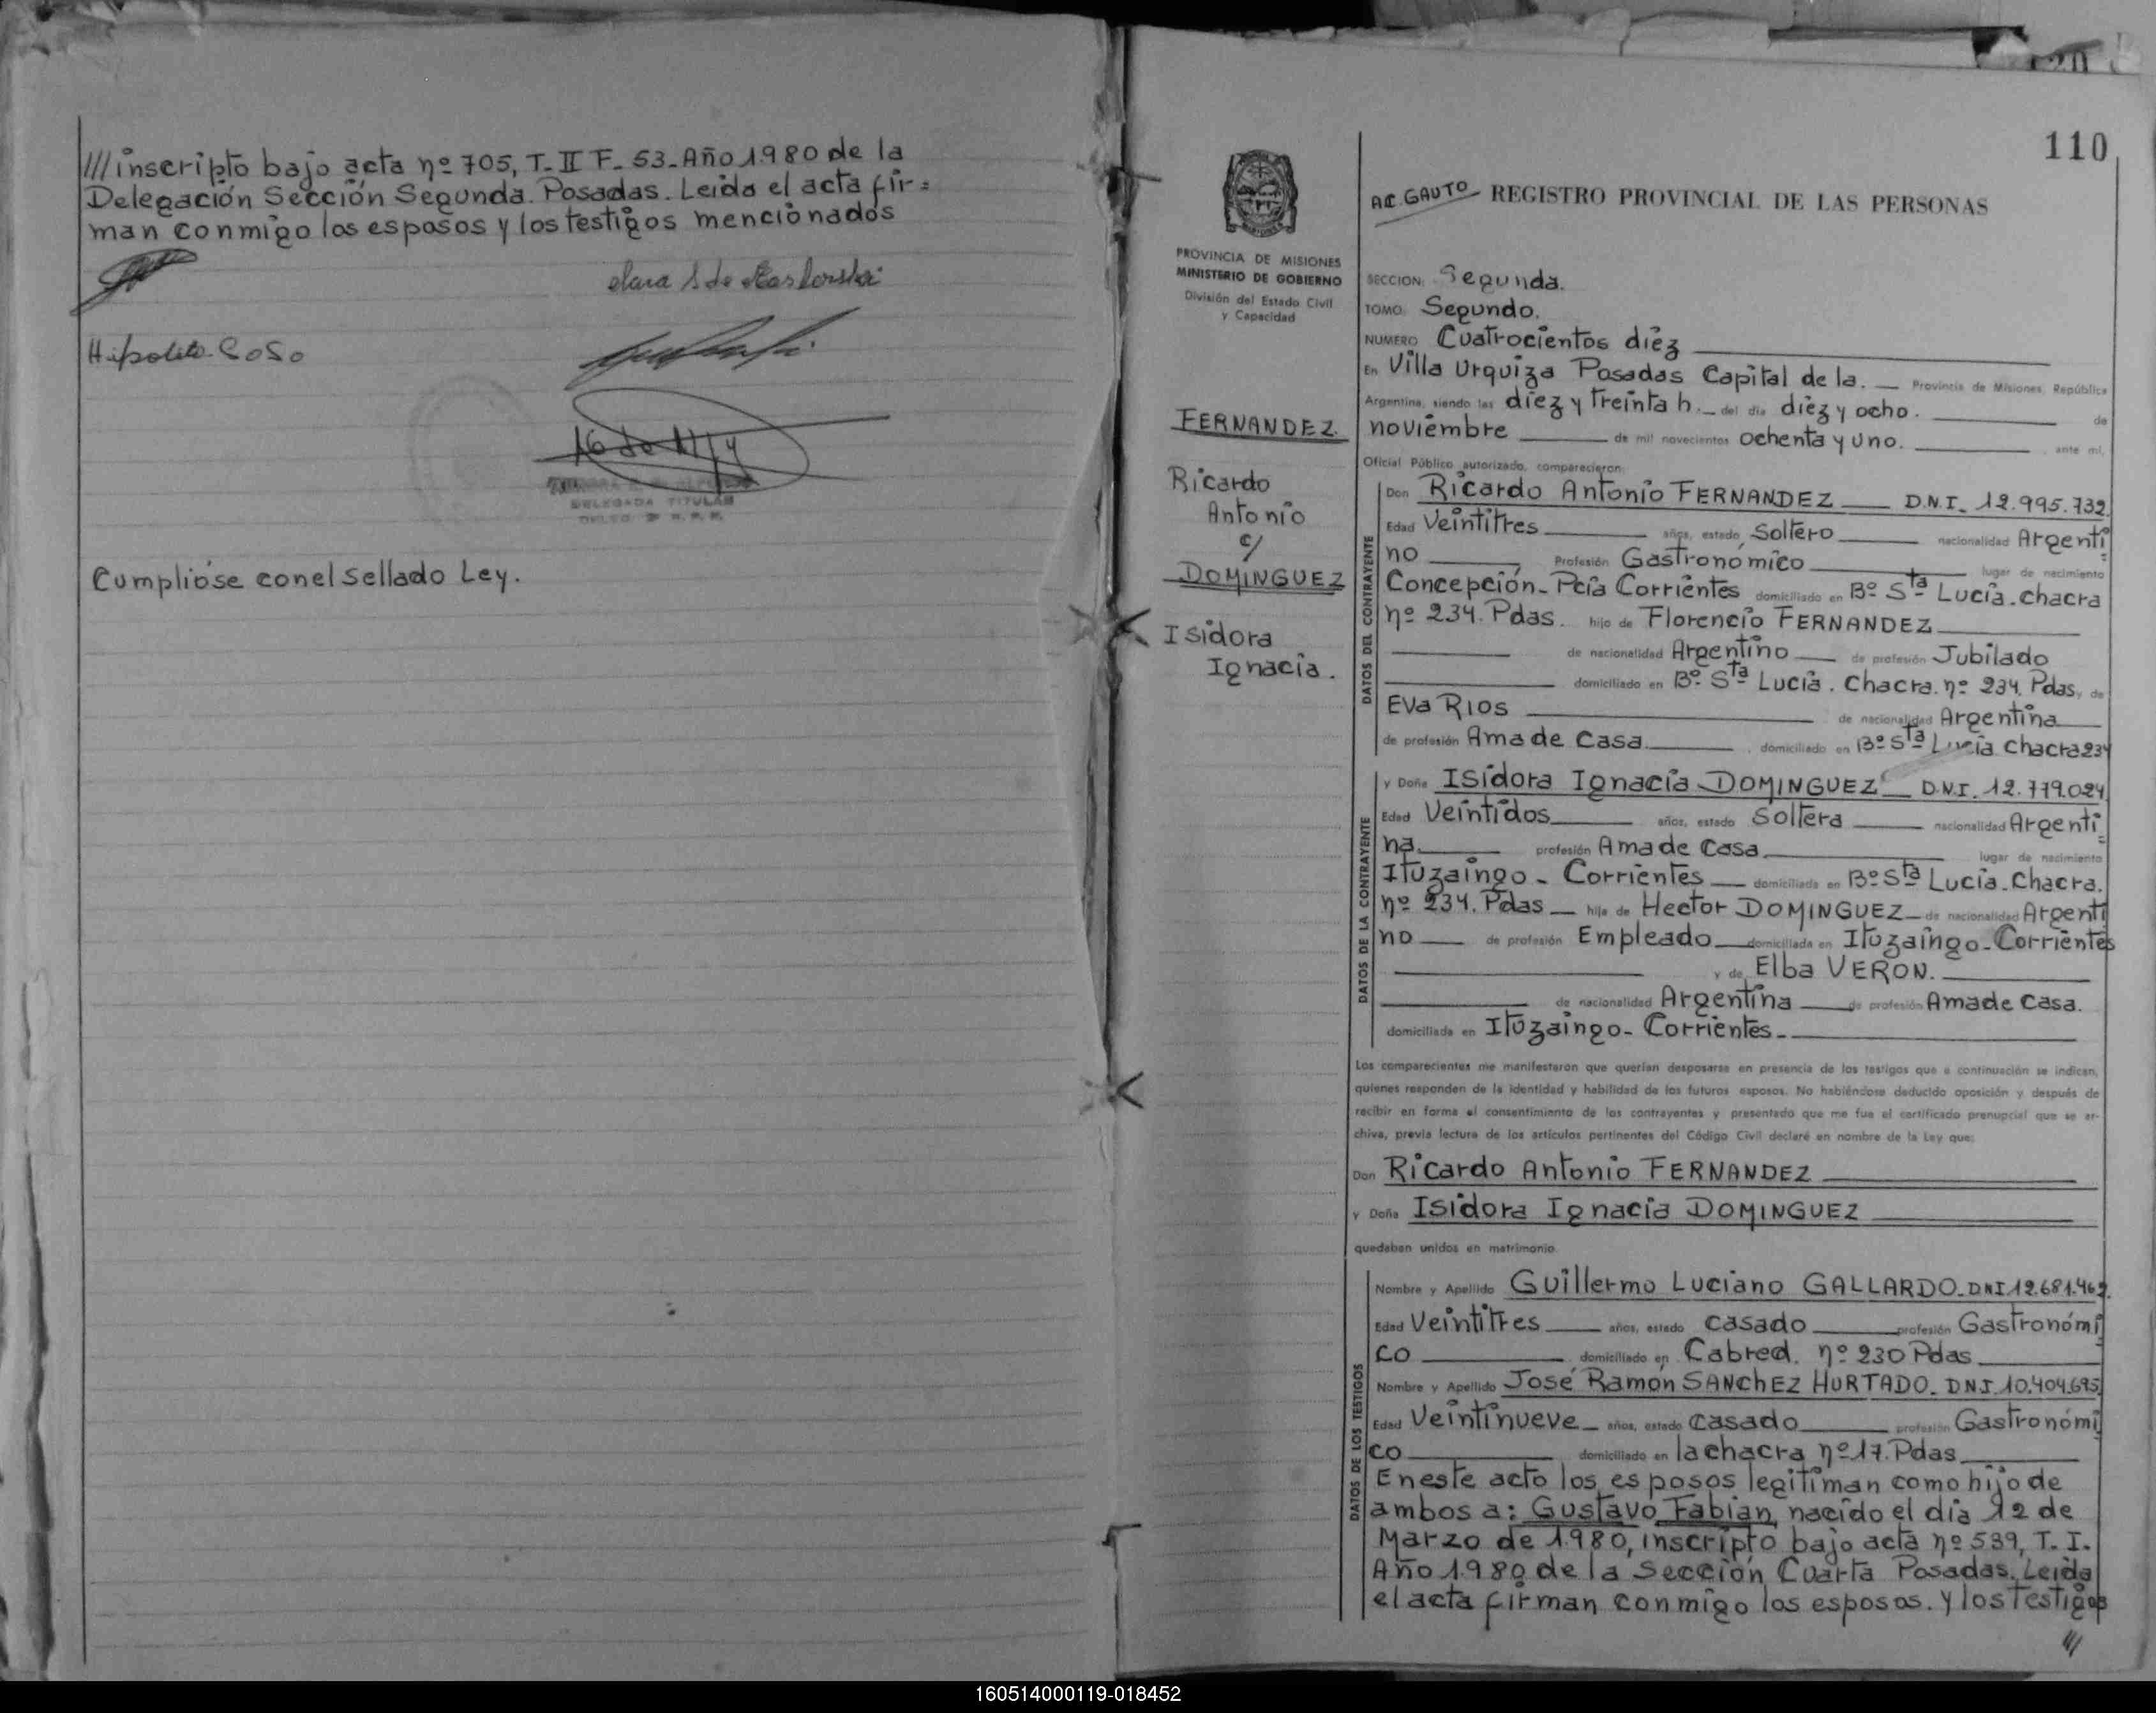 ///inscripto bajo acta nº 705, T_ II F_ 53_ Año 1980 de la
Delegación Sección Segunda. Posadas. Leida el acta fir=
man conmigo los esposos y los testigos mencionados
Hipolito Soso
16 de
DELEGADA TITULAR
Cumplióse con el sellado Ley.
110
AC. GAUTO
REGISTRO PROVINCIAL DE LAS PERSONAS
PROVINCIA DE MISIONES
MINISTERIO DE GOBIERNO
División del Estado Civil
y Capacidad
FERNANDEZ
Ricardo
Antonio
c/
DOMINGUEZ
Isidora
Ignacia.
SECCION: Segunda.
TOMO: Segundo.
NUMERO Cuatrocientos diez
En Villa Urquiza Posadas Capital de la. Provincia de Misiones, República
Argentina, siendo las diez y treinta h. del día diez y ocho. de
noviembre de mil novecientos ochenta y uno. ante mí,
Oficial Público autorizado, comparecieron:
DATOS DEL CONTRAYENTE
Don Ricardo Antonio FERNANDEZ D.N.I. 12.995.732
Edad Veintitres años, estado Soltero nacionalidad Argenti=
no Profesión Gastronómico lugar de nacimiento
Concepción_ Pcia Corrientes domiciliado en Bº Sta Lucía. chacra
nº 234. Pdas. hijo de Florencio FERNANDEZ
de nacionalidad Argentino de profesión Jubilado
domiciliado en Bº Sta Lucia. Chacra. nº 234. Pdas, de
Eva RIOS de nacionalidad Argentina
de profesión Ama de Casa. domiciliado en Bº Sta Lucia Chacra 234
DATOS DE LA CONTRAYENTE
y Doña Isidora Ignacia DOMINGUEZ D.N.I. 12.779.024
Edad Veintidos años, estado Soltera nacionalidad Argenti=
na. profesión Ama de Casa. lugar de nacimiento
Ituzaingo_ Corrientes domiciliada en Bº Sta Lucia_ Chacra.
nº 234. Pdas hija de Hector DOMINGUEZ de nacionalidad Argenti
no de profesión Empleado domiciliada en Ituzaingo_ Corrientes
y de Elba VERON.
de nacionalidad Argentina de profesión Ama de Casa.
domiciliada en Ituzaingo_ Corrientes_
Los comparecientes me manifestaron que querían desposarse en presencia de los testigos que a continuación se indican,
quienes responden de la identidad y habilidad de los futuros esposos. No habiéndose deducido oposición y después de
recibir en forma el consentimiento de los contrayentes y presentado que me fue el certificado prenupcial que se ar-
chiva, previa lectura de los artículos pertinentes del Código Civil declaré en nombre de la Ley que:
Don Ricardo Antonio FERNANDEZ
y Doña Isidora Ignacia DOMINGUEZ
quedaban unidos en matrimonio.
DATOS DE LOS TESTIGOS
Nombre y Apellido Guillermo Luciano GALLARDO_ DNI 12.681.462.
Edad Veintitres años, estado casado profesión Gastronómi
co domiciliado en Cabred. nº 230 Pdas
Nombre y Apellido José Ramón SANCHEZ HURTADO_ D.N.I. 10.404.695
Edad Veintinueve años, estado casado profesión Gastronómi
co domiciliado en la chacra nº 17. Pdas
En este acto los esposos legitiman como hijo de
ambos a: Gustavo Fabian, nacido el dia 12 de
Marzo de 1980, inscripto bajo acta nº 539, T. I.
Año 1980 de la Sección Cuarta Posadas. Leida
el acta firman conmigo los esposos. y los testigos
///
160514000119-018452